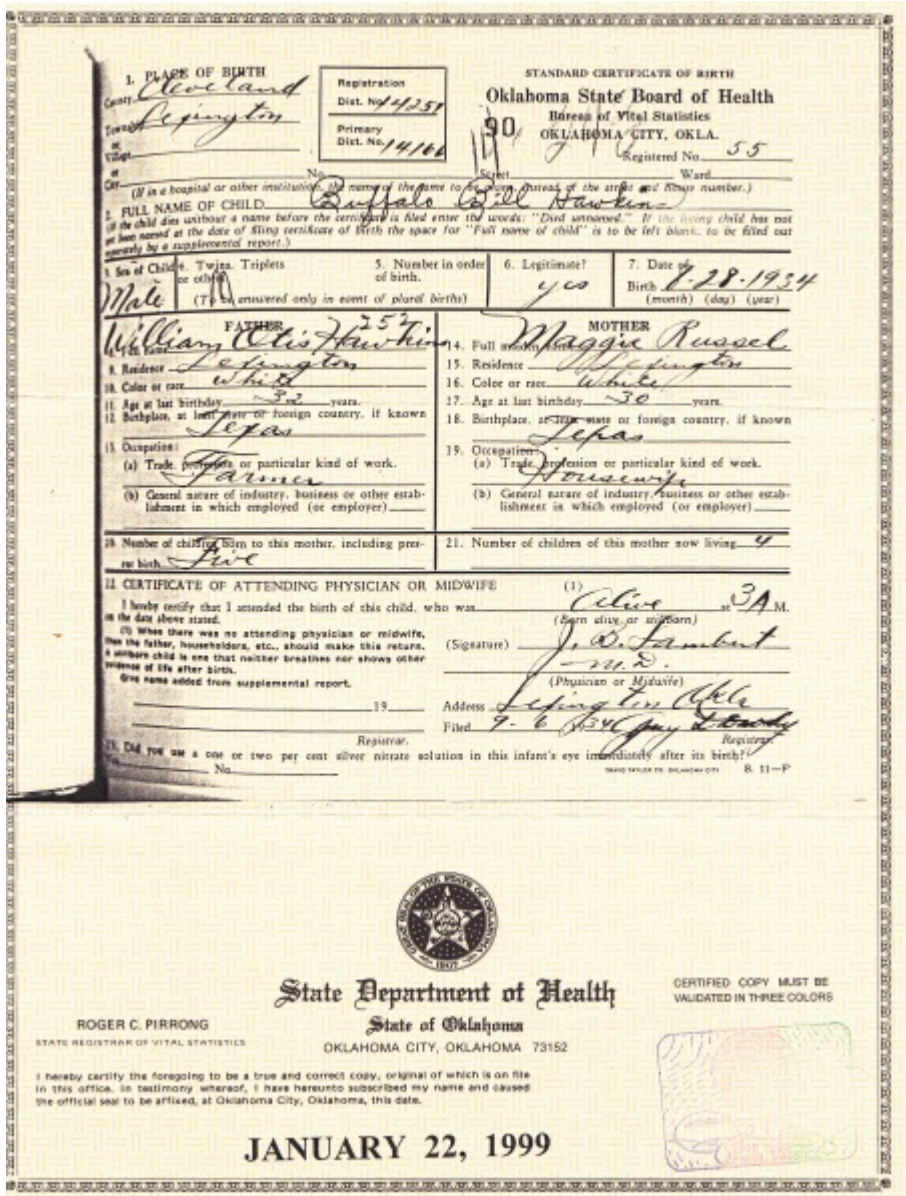 1. PLACE OF BIRTH
County Cleveland
Township Lexington
or
Village
or
City
Registration
Dist. No. 14259
Primary
Dist. No. 14166
STANDARD CERTIFICATE OF BIRTH
Oklahoma State Board of Health
Bureau of Vital Statistics
OKLAHOMA CITY, OKLA.
90
Registered No. 55
No. Street Ward
(If in a hospital or other institution, the name of the same to be given, instead of the street and house number.)
2. FULL NAME OF CHILD Buffalo Bill Hawkins
(If the child dies without a name before the certificate is filed enter the words: "Died unnamed." If the living child has not
yet been named at the date of filing certificate of birth the space for "Full name of child" is to be left blank, to be filled out
separately by a supplemental report.)
3. Sex of Child Male
4. Twins, Triplets
or other
5. Number in order
of birth.
(To be answered only in event of plural births)
6. Legitimate?
yes
7. Date of
Birth 28-1934
(month) (day) (year)
FATHER
252
William Otis Hawkins
9. Residence Lexington
10. Color or race White
11. Age at last birthday 32 years.
12. Birthplace, at least state or foreign country, if known
Texas
13. Occupation:
(a) Trade, profession or particular kind of work.
Farmer
(b) General nature of industry, business or other estab-
lishment in which employed (or employer)
MOTHER
14. Full maiden name Maggie Russel
15. Residence Lexington
16. Color or race White
17. Age at last birthday 30 years.
18. Birthplace, at least state or foreign country, if known
Texas
19. Occupation:
(a) Trade, profession or particular kind of work.
Housewife
(b) General nature of industry, business or other estab-
lishment in which employed (or employer)
20. Number of children born to this mother, including pres-
ent birth. Five
21. Number of children of this mother now living 4
22. CERTIFICATE OF ATTENDING PHYSICIAN OR MIDWIFE (1)
I hereby certify that I attended the birth of this child, who was Alive at 3 A M.
on the date above stated. (Born alive or stillborn)
(1) When there was no attending physician or midwife,
then the father, householders, etc., should make this return.
A stillborn child is one that neither breathes nor shows other
evidence of life after birth.
Give name added from supplemental report.
19
Registrar.
(Signature) J. D. Lambert
M.D.
(Physician or Midwife)
Address Lexington Okla
Filed 9-6 1934 Guy
Registrar.
23. Did you use a one or two per cent silver nitrate solution in this infant's eye immediately after its birth?
Yes No
B. 11—P
GREAT SEAL OF THE STATE OF OKLAHOMA
1907
State Department of Health
State of Oklahoma
OKLAHOMA CITY, OKLAHOMA 73152
ROGER C. PIRRONG
STATE REGISTRAR OF VITAL STATISTICS
CERTIFIED COPY MUST BE
VALIDATED IN THREE COLORS
I hereby certify the foregoing to be a true and correct copy, original of which is on file
in this office. In testimony whereof, I have hereunto subscribed my name and caused
the official seal to be affixed, at Oklahoma City, Oklahoma, this date.
JANUARY 22, 1999